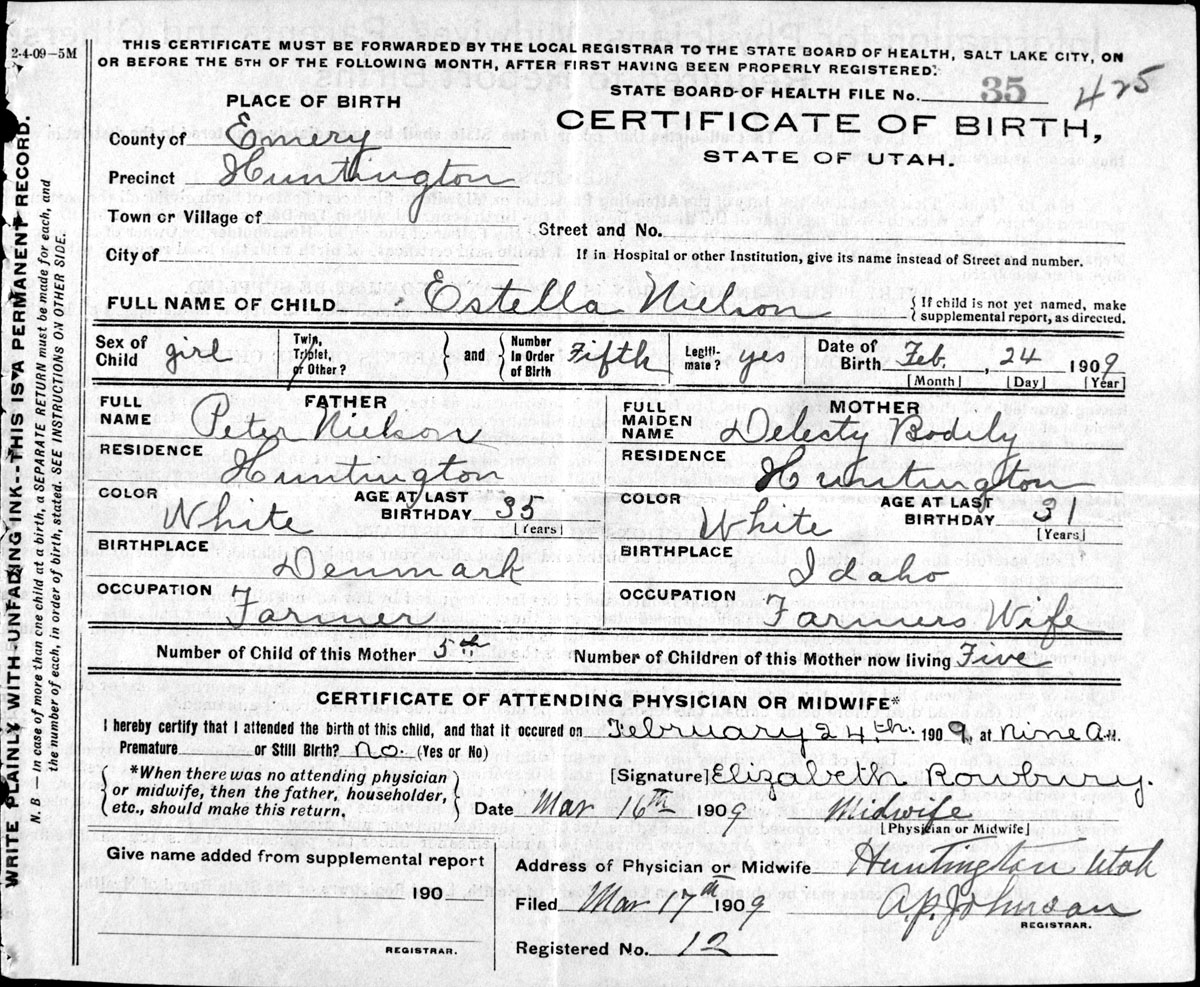 2-4-09—5M
THIS CERTIFICATE MUST BE FORWARDED BY THE LOCAL REGISTRAR TO THE STATE BOARD OF HEALTH, SALT LAKE CITY, ON
OR BEFORE THE 5TH OF THE FOLLOWING MONTH, AFTER FIRST HAVING BEEN PROPERLY REGISTERED.
STATE BOARD OF HEALTH FILE No. 35 425
PLACE OF BIRTH
CERTIFICATE OF BIRTH,
STATE OF UTAH.
County of Emery
Precinct Huntington
Town or Village of
Street and No.
City of
If in Hospital or other Institution, give its name instead of Street and number.
FULL NAME OF CHILD Estella Nielson
{If child is not yet named, make
supplemental report, as directed.
Sex of Child girl
Twin, Triplet, or Other?
and
Number in Order of Birth Fifth
Legitimate? yes
Date of Birth Feb. , 24 1909
[Month] [Day] [Year]
FATHER
FULL NAME Peter Nielson
RESIDENCE Huntington
COLOR White AGE AT LAST BIRTHDAY 35 [Years]
BIRTHPLACE Denmark
OCCUPATION Farmer
MOTHER
FULL MAIDEN NAME Delecty Bodily
RESIDENCE Huntington
COLOR White AGE AT LAST BIRTHDAY 31 [Years]
BIRTHPLACE Idaho
OCCUPATION Farmers Wife
Number of Child of this Mother 5th Number of Children of this Mother now living Five
CERTIFICATE OF ATTENDING PHYSICIAN OR MIDWIFE*
I hereby certify that I attended the birth of this child, and that it occured on February 24th. 1909, at nine A.M.
Premature or Still Birth? no. (Yes or No)
{*When there was no attending physician
or midwife, then the father, householder,
etc., should make this return.}
[Signature] Elizabeth Rowbury.
Date Mar 16th 1909 Midwife
[Physician or Midwife]
Give name added from supplemental report
190
REGISTRAR.
Address of Physician or Midwife Huntington Utah
Filed Mar 17th 1909 A.P. Johnson
REGISTRAR.
Registered No. 12
WRITE PLAINLY WITH UNFADING INK--THIS IS A PERMANENT RECORD.
N. B — In case of more than one child at a birth, a SEPARATE RETURN must be made for each, and
the number of each, in order of birth, stated. SEE INSTRUCTIONS ON OTHER SIDE.